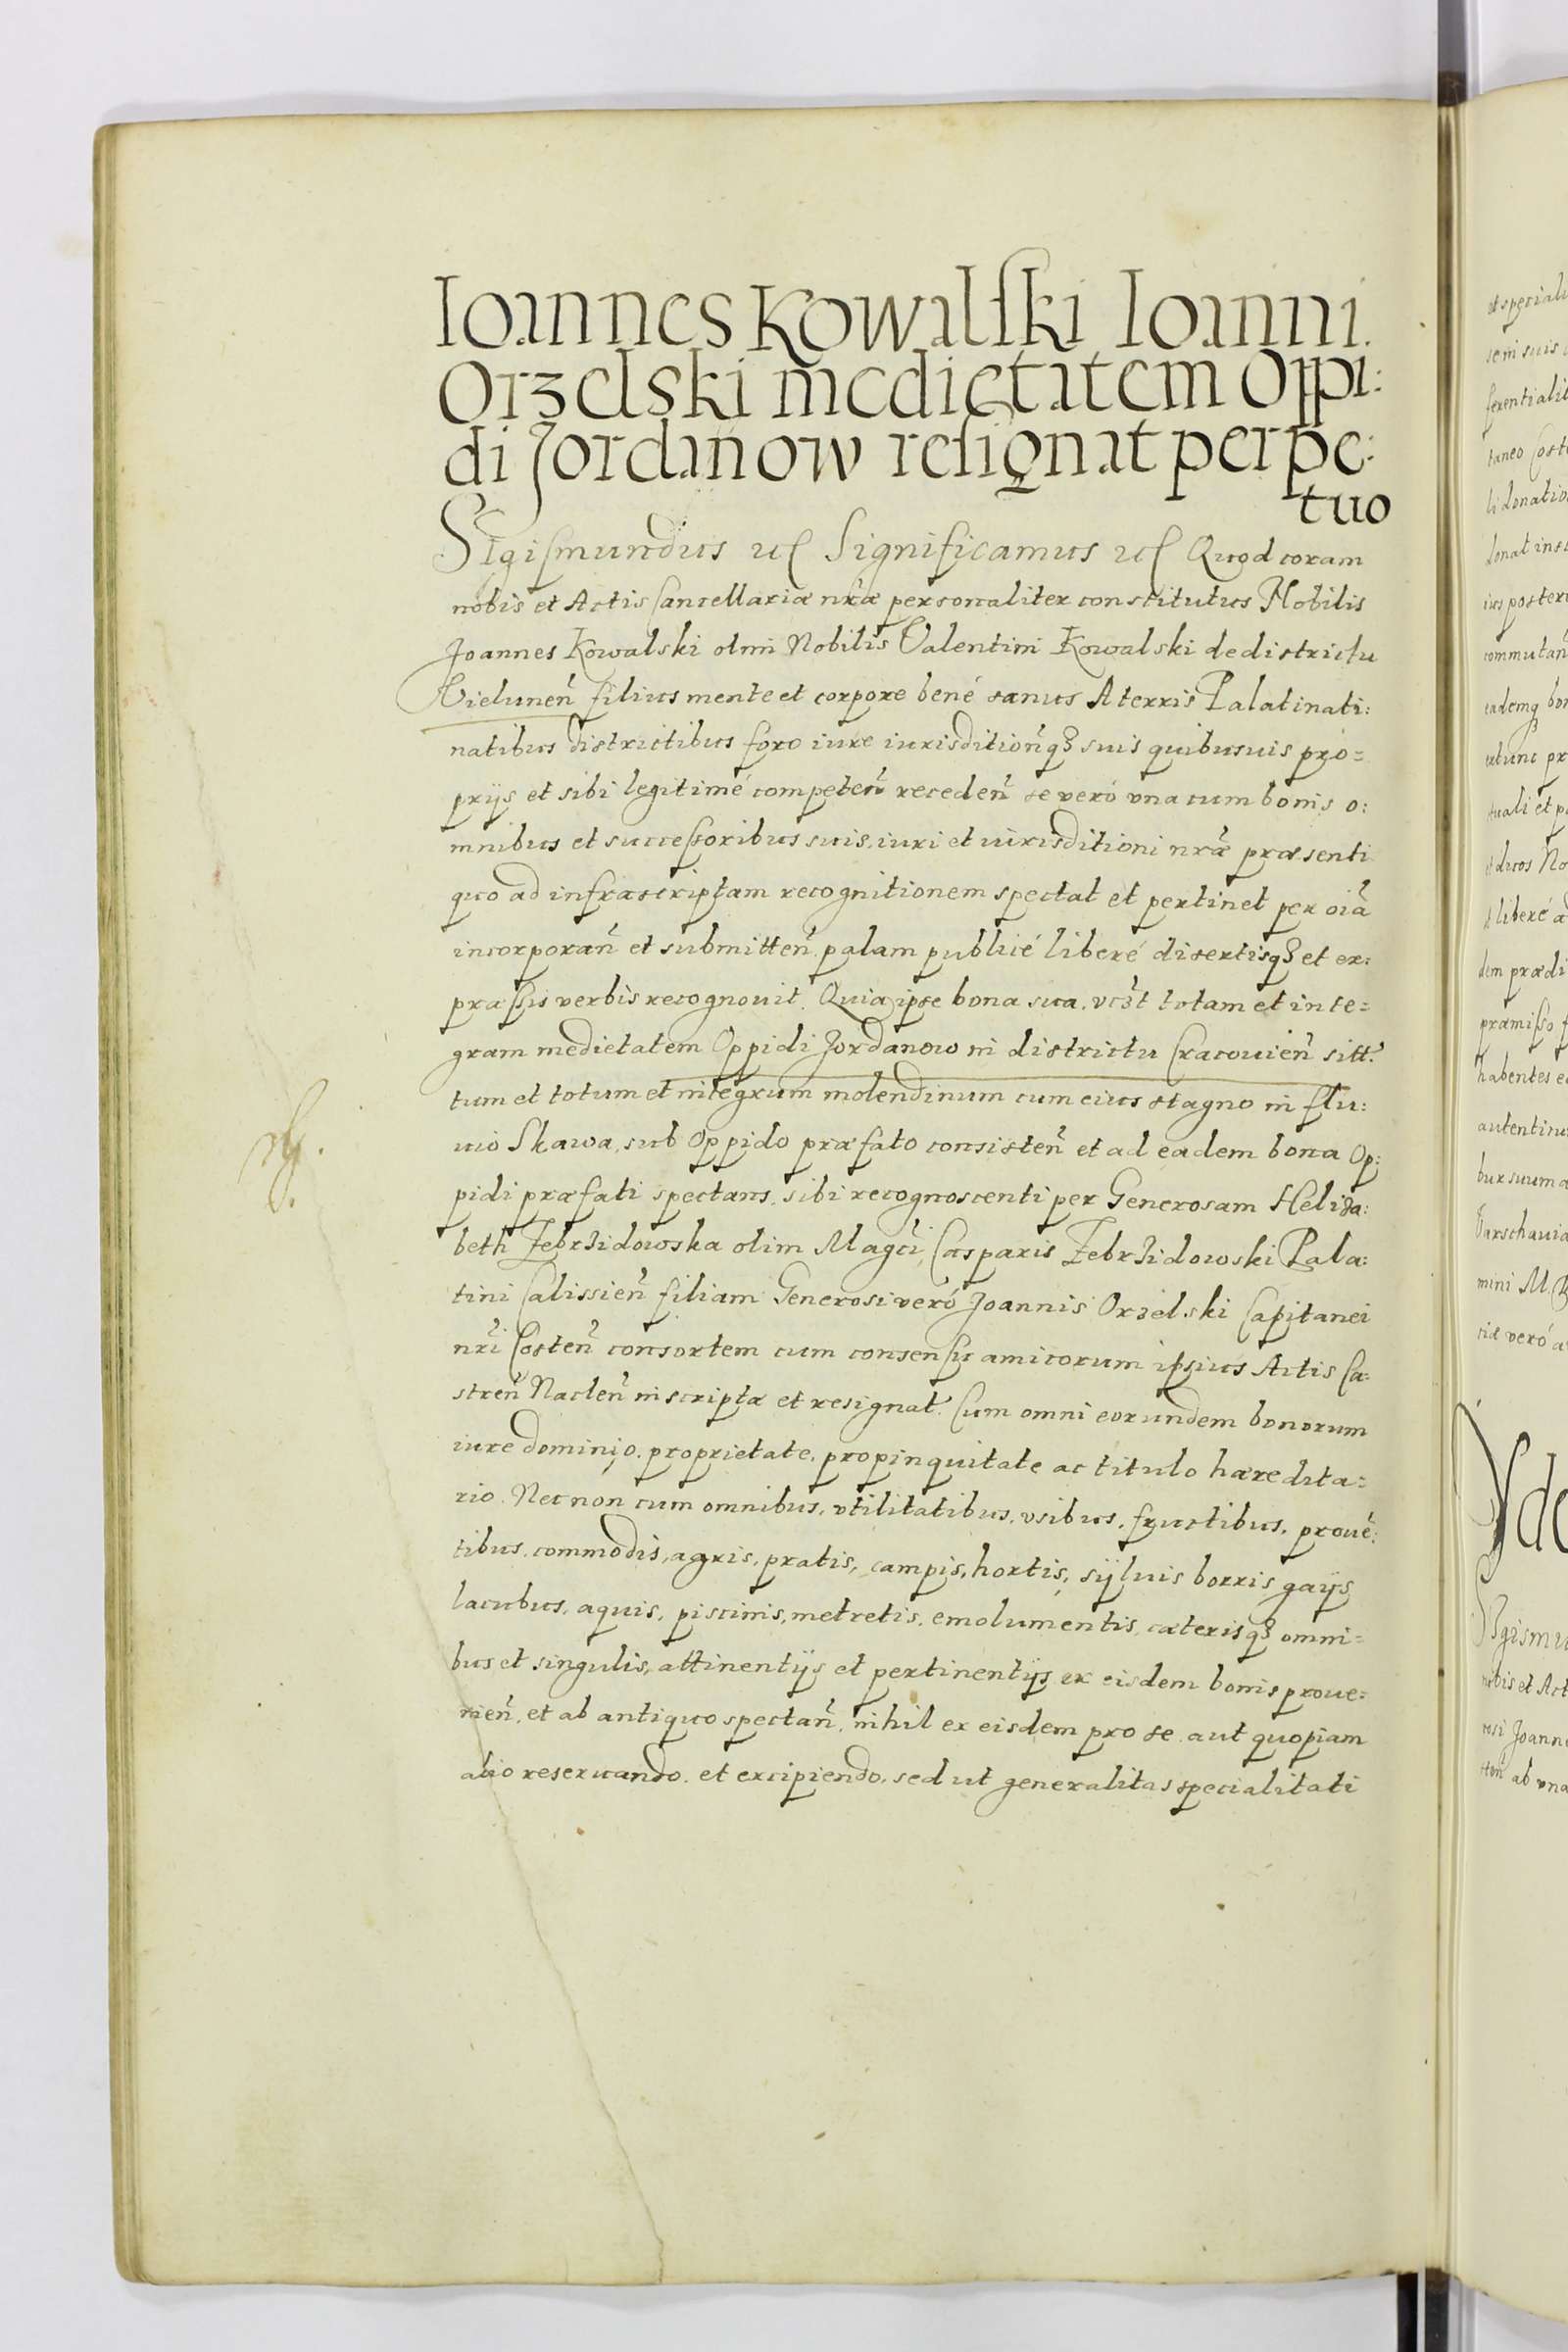 Ioannes Kowalski Ioanni
Orzelski medietatem Oppi:
di Jordanow resignat perpe:
tuo
Sigismundus etc Significamus etc Quod coram
nobis et Actis Cancellariæ nr̃æ personaliter constitutus Nobilis
Joannes Kowalski olim Nobilis Valentini Kowalski de districtu
Vielunen̄ filius mente et corpore bené sanus A terris Palatinati:
natibus districtibus foro iure iurisdition̄q₃ suis quibusuis pro=
prijs et sibi legitimé competen̄ receden̄ se veró vna cum bonis o:
mnibus et successoribus suis, iuri et iurisditioni nrã præsenti
quo ad infrascriptam recognitionem spectat et pertinet per oiã
incorporan̄ et submitten̄ palam publicé liberé disertisq₃ et ex:
præssis verbis recognouit. Quia ipse bona sua, vcz̃t totam et inte=
gram medietatem Oppidi Jordanow in districtu Cracouien̄ sitt.
tum et totum et integrum molendinum cum eius stagno in flu:
uio Skawa, sub Oppido præfato consisten̄ et ad eadem bona Op:
pidi præfati spectans, sibi recognoscenti per Generosam Heliza:
beth Zebrzidowska olim Magci Casparis Zebrzidowski Pala:
tini Calissien̄ filiam Generosi veró Joannis Orzelski Capitanei
nr̃i Costen̄ consortem cum consensu amicorum ipsius Actis Ca:
stren̄ Naclen̄ inscripta et resignat. Cum omni eorundem bonorum
iure dominio, proprietate, propinquitate ac titulo hæredita=
rio. Nec nón cum omnibus, vtilitatibus, vsibus, fructibus, prouẽ:
tibus, commodis, agris, pratis, campis, hortis, sijluis borris gaijs
lacubus, aquis, piscinis, metretis, emolumentis, cæterisq₃ omni=
bus et singulis, attinentijs et pertinentijs ex eisdem bonis proue=
nien̄, et ab antiquo spectan̄, nihil ex eisdem pro se aut quopiam
alio reseruando, et excipiendo, sed ut generalitas specialitati